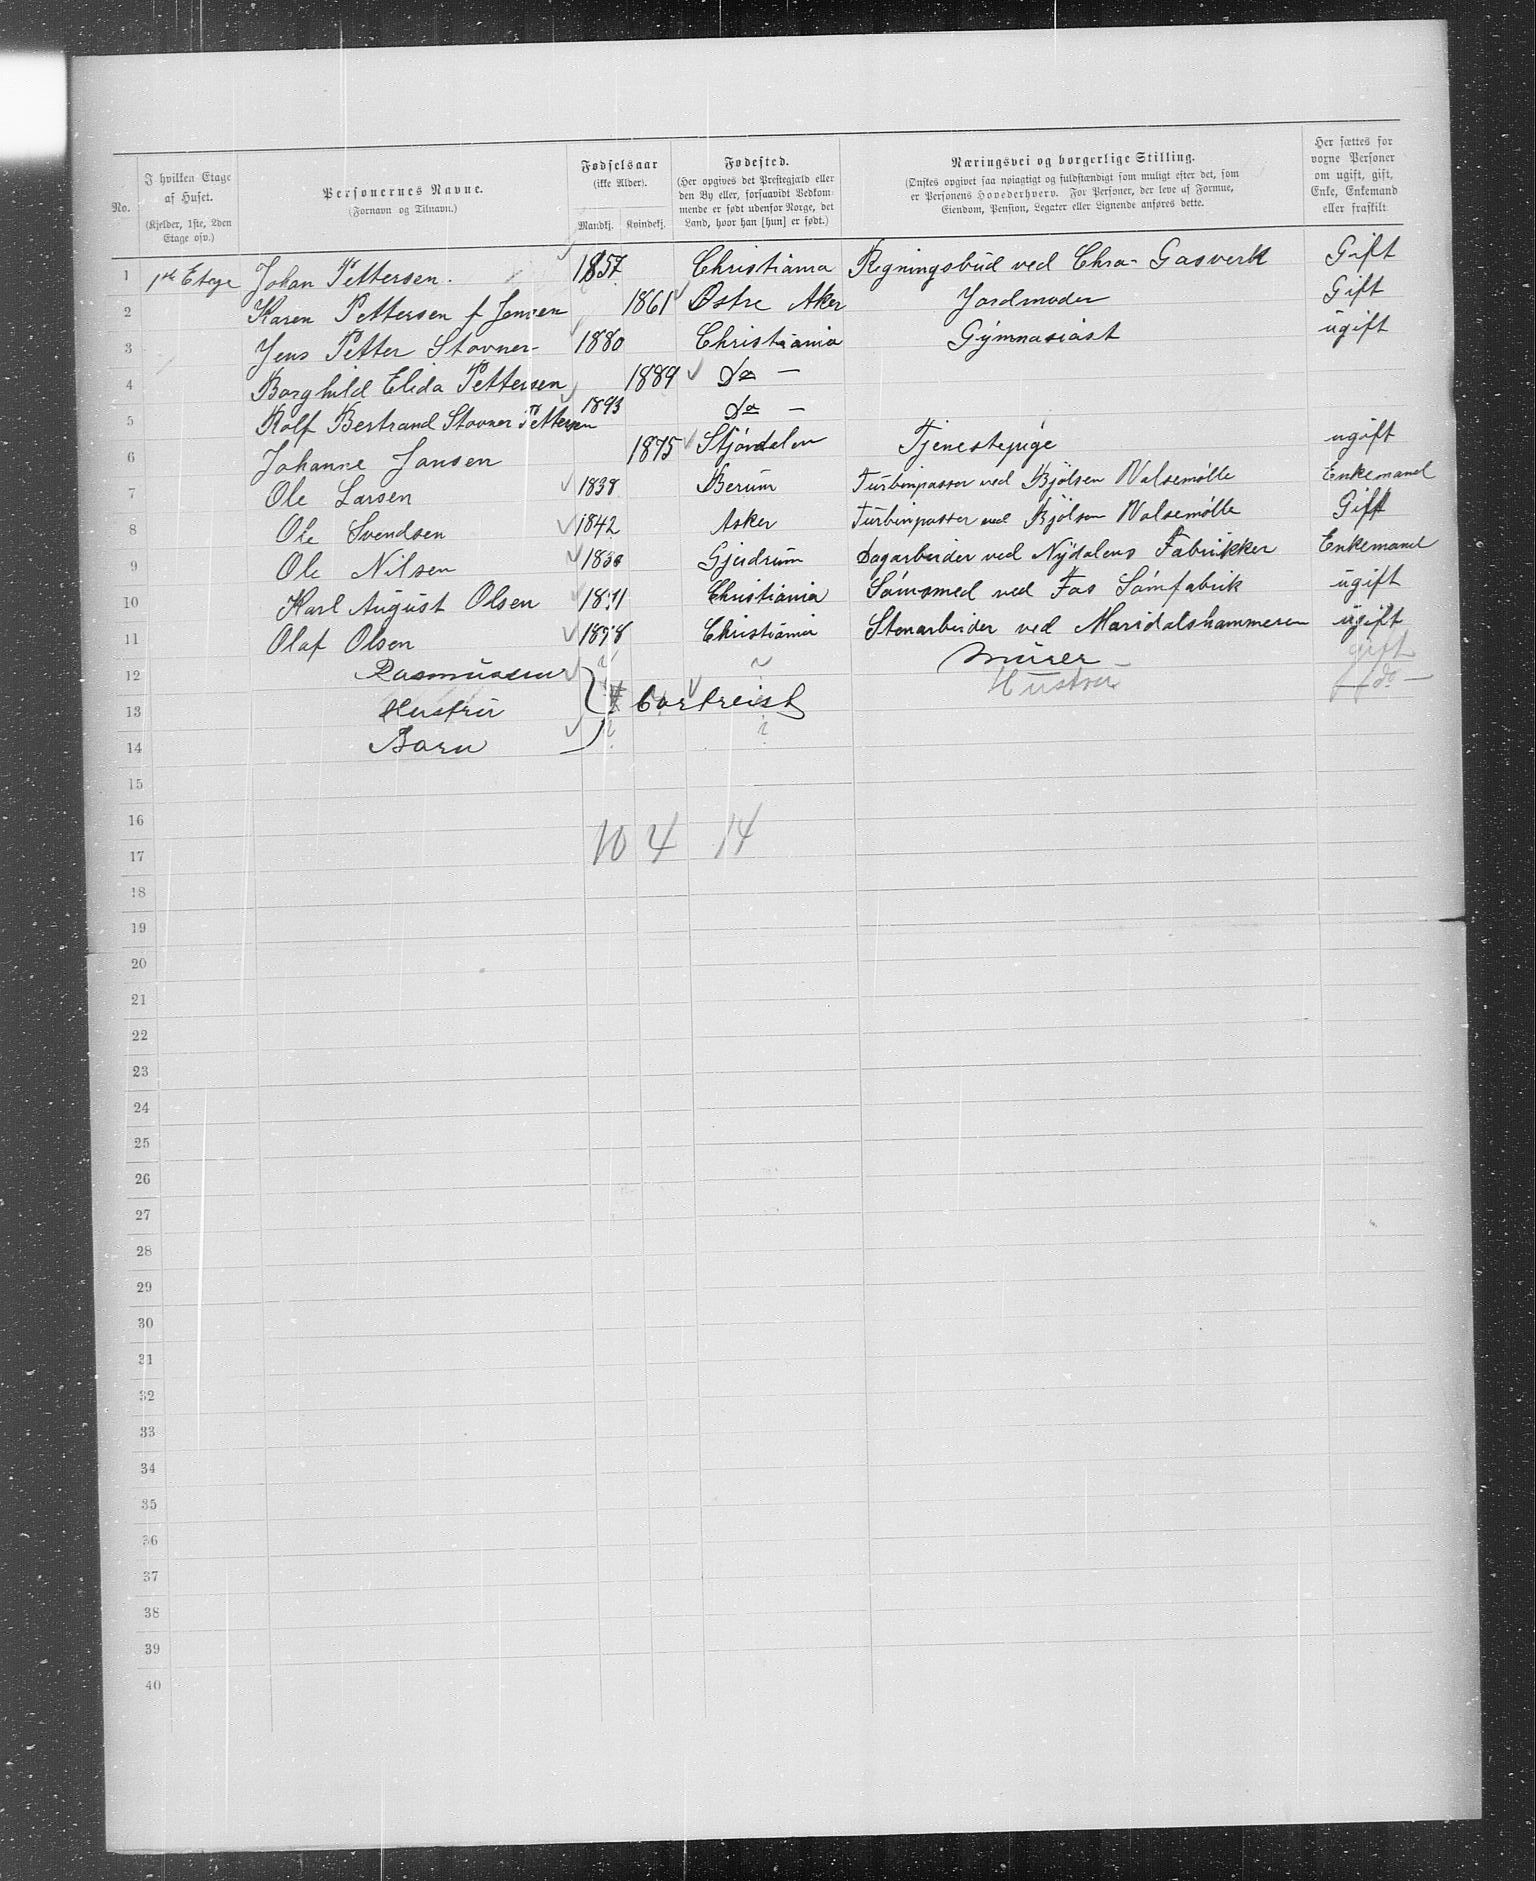 No.
I hvilken Etage af Huset.
(Kjelder, 1ste, 2den Etage osv.)
Personernes Navne.
(Fornavn og Tilnavn.)
Fødselsaar
(ikke Alder).
Mandkj. Kvindekj.
Fødested.
(Her opgives det Prestegjæld eller den By eller, forsaavidt Vedkommende er født udenfor Norge, det Land, hvor han [hun] er født.)
Næringsvei og borgerlige Stilling.
(Ønskes opgivet saa nøiagtigt og fuldstændigt som muligt efter det, som er Personens Hovederhverv. For Personer, der leve af Formue, Eiendom, Pension, Legater eller Lignende anføres dette.
Her sættes for voxne Personer om ugift, gift, Enke, Enkemand eller fraskilt
1 1ste Etage Johan Pettersen. 1857 Christiania Regningsbud ved Chra. Gasverk Gift
2 Karen Pettersen f Jensen 1861 Østre Aker Jordmoder Gift
3 Jens Petter Stovner 1880 Christiania Gymnasiast ugift
4 Borghild Elida Pettersen 1889 Do —
5 Rolf Bertrand Stovner Pettersen 1893 Do —
6 Johanne Jansen 1875 Stjørdalen Tjenestepige ugift
7 Ole Larsen 1838 Berum Turbinpasser ved Bjølsen Valsemølle Enkemand
8 Ole Svendsen 1842 Asker Turbinpasser ved Bjølsen Valsemølle Gift
9 Ole Nilsen 1830 Gjerdrum Dagarbeider ved Nydalens Fabrikker Enkemand
10 Karl August Olsen 1871 Christiania Sømsmed ved Fos Sømfabrik ugift
11 Olaf Olsen 1878 Christiania Stenarbeider ved Maridalshammeren ugift
12 Rasmussen ? ~ Murer gift
13 Hustru bortreist Hustru do —
14 Barn ? ?
15
16
10 4 14
17
18
19
20
21
22
23
24
25
26
27
28
29
30
31
32
33
34
35
36
37
38
39
40